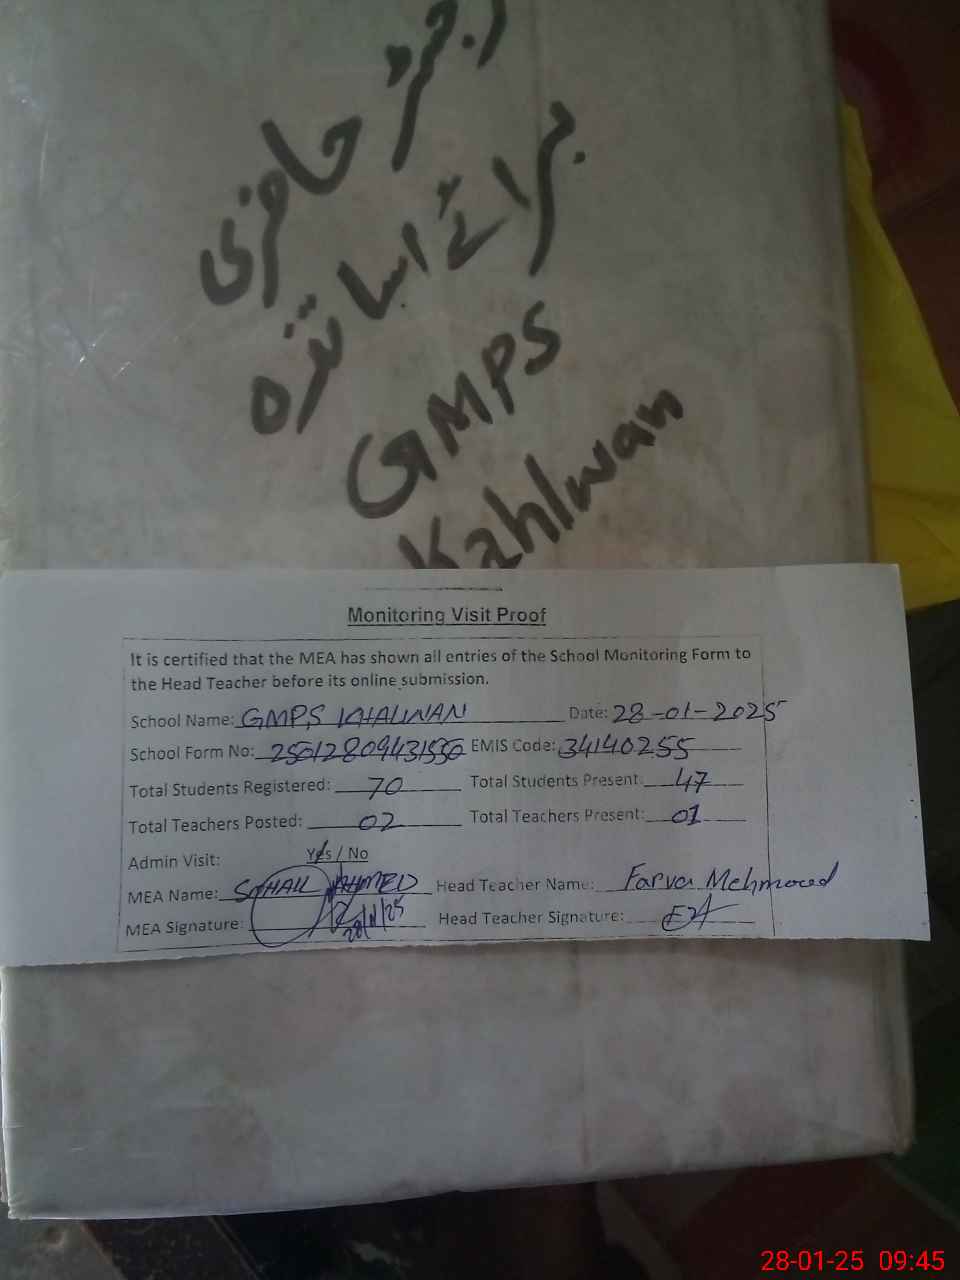 رجسٹر حاضری
برائے اساتذہ
GMPS
Kahlwan
Monitoring Visit Proof
It is certified that the MEA has shown all entries of the School Monitoring Form to
the Head Teacher before its online submission.
School Name: GMPS KHALWAN Date: 28-01-2025
School Form No: EMIS Code: 34140255
Total Students Registered: 70 Total Students Present: 47
Total Teachers Posted: 02 Total Teachers Present: 01
Admin Visit: Yes / No
MEA Name: SOHAIL AHMED Head Teacher Name: Farva Mehmood
MEA Signature: 28/1/25 Head Teacher Signature:
28-01-25 09:45